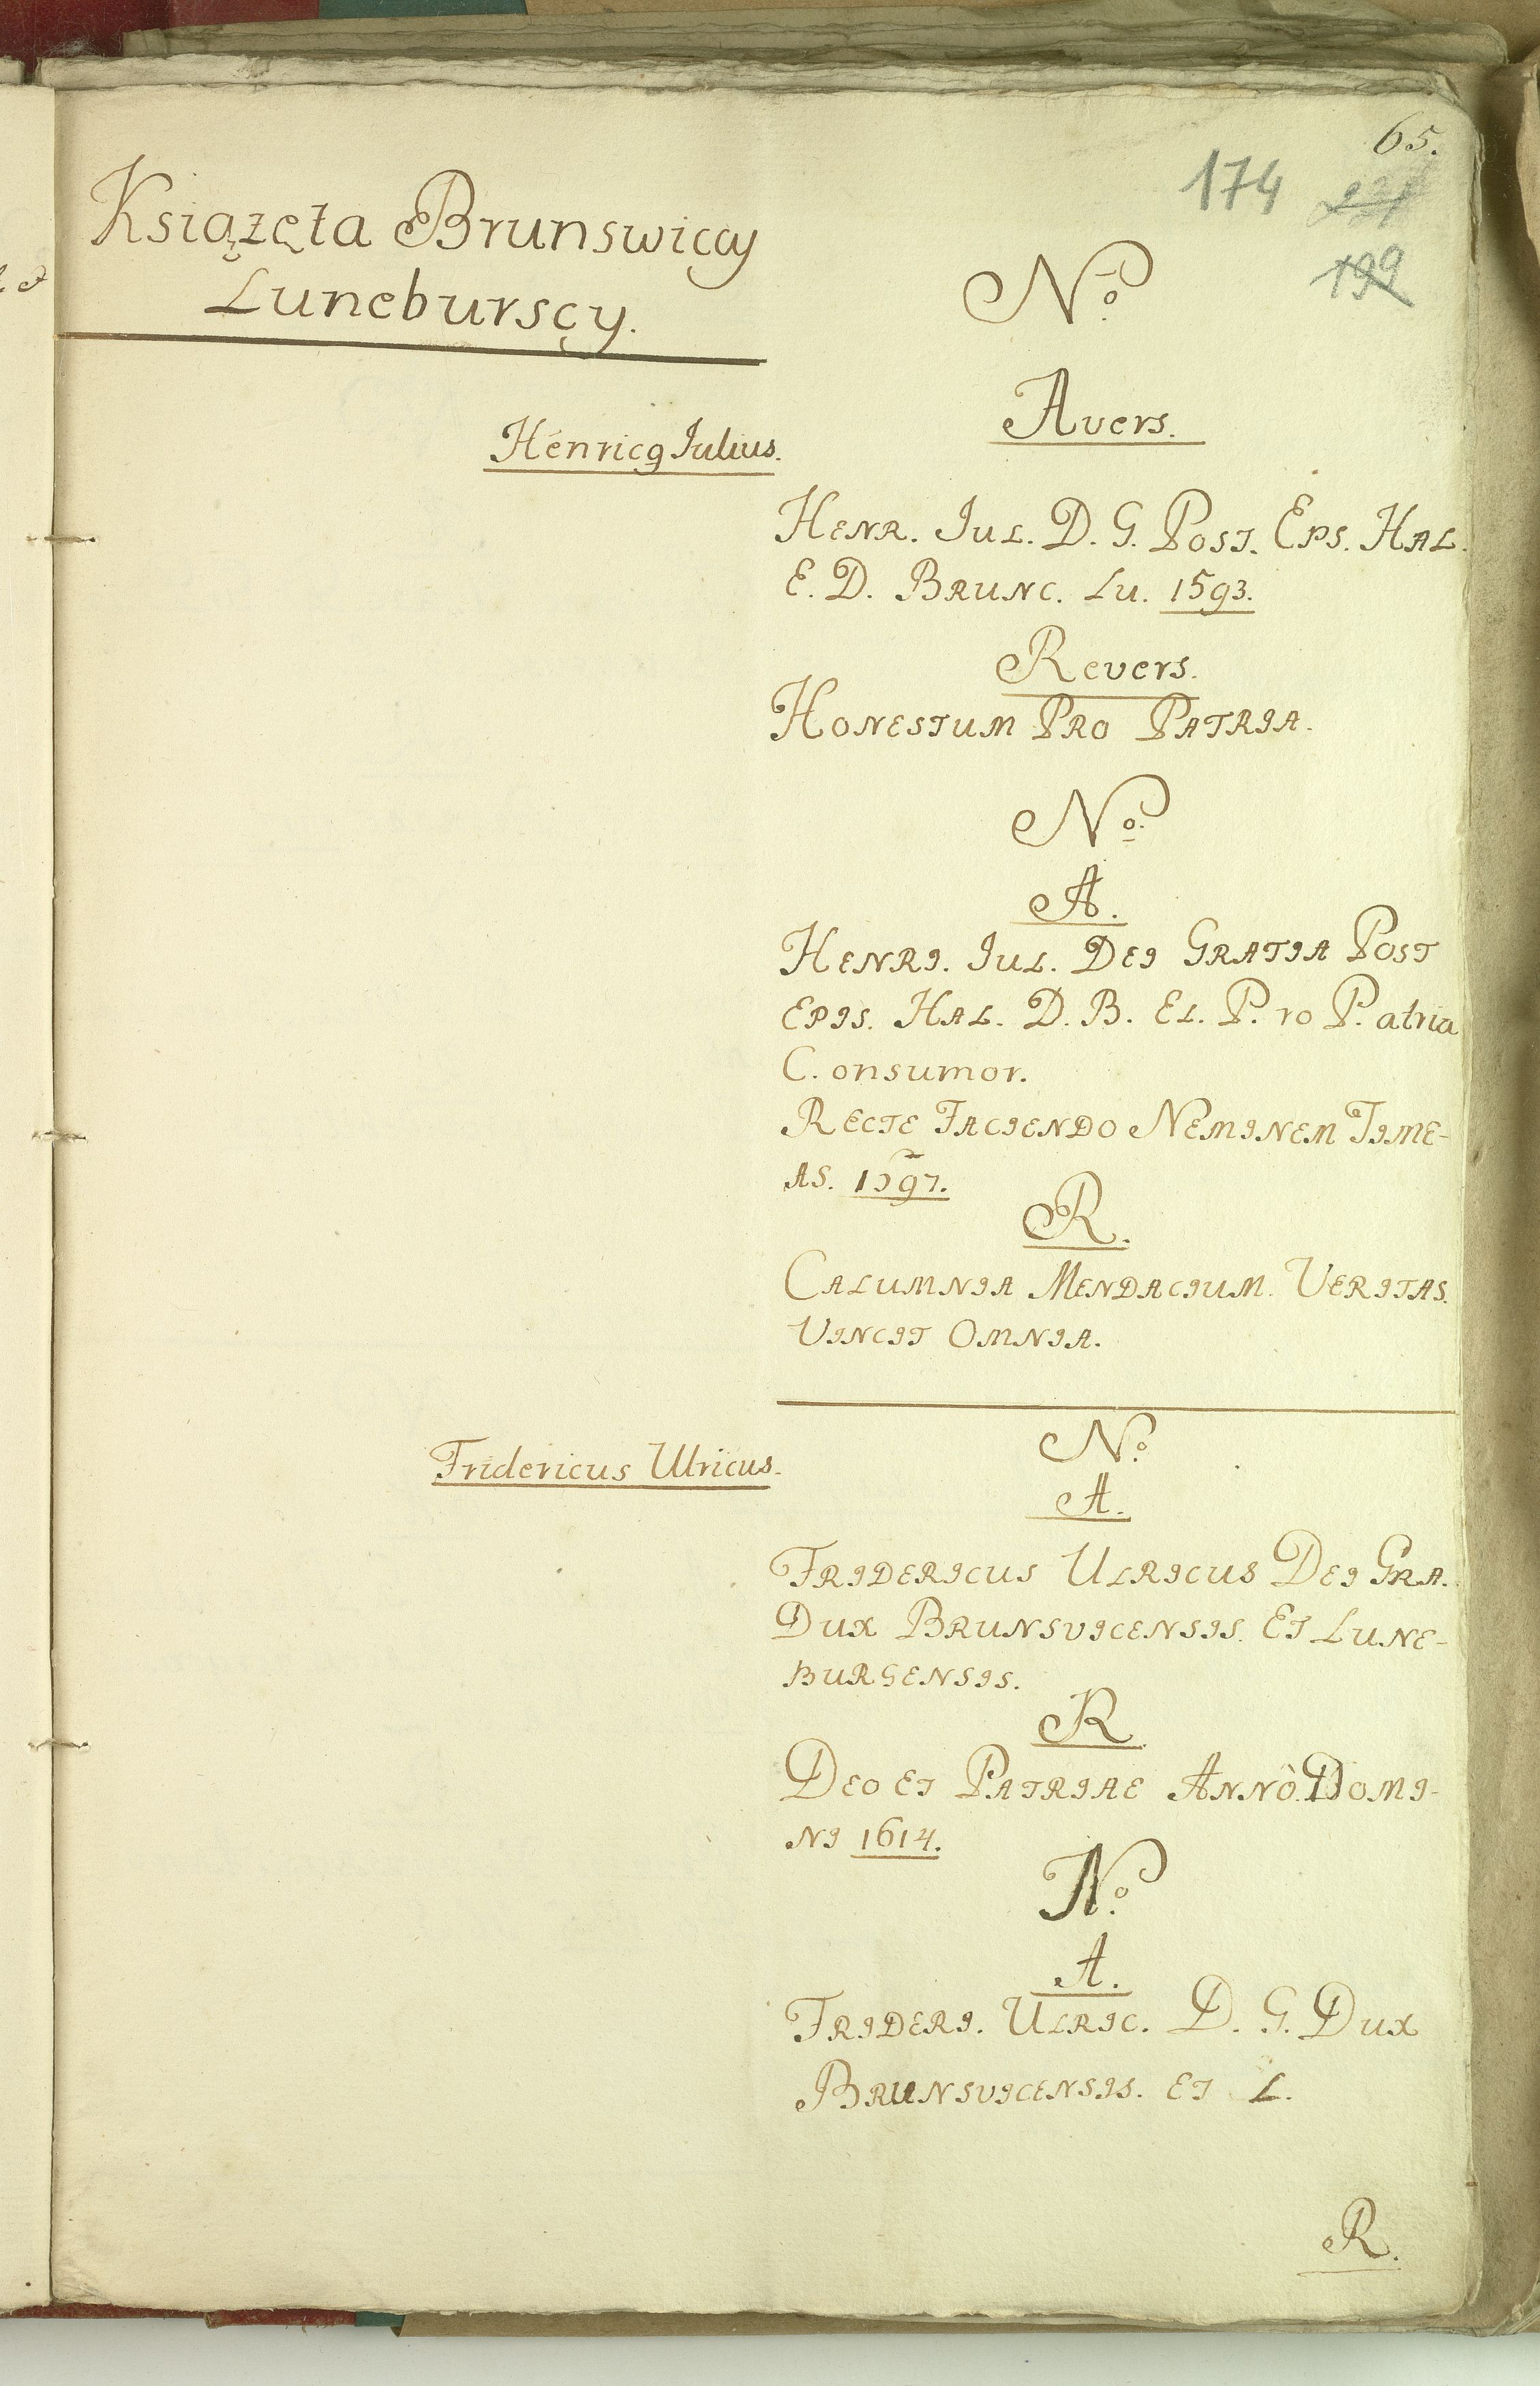 65.
174
199
Książęta Brunswiccy
Luneburscy.
No
Avers.
Henricg Iulius.
HENR. IUL. D. G. POST. EPS. HAL.
E. D. BRUNC. LU. 1593.
Revers.
HONESTUM PRO PATRIA.
No.
A.
HENRI. IUL. DEI GRATIA POST
EPIS. HAL. D. B. EL. P. ro P. atria
C. onsumor.
RECTE FACIENDO NEMINEM TIME-
AS. 1597.
R.
CALUMNIA MENDACIUM. VERITAS.
VINCIT OMNIA.
No.
Fridericus Ulricus.
A.
FRIDERICUS ULRICUS DEI GRA.
DUX BRUNSVICENSIS. ET LUNE-
BURGENSIS.
R.
DEO ET PATRIAE ANNÒ. DOMI-
NI 1614.
No.
A.
FRIDERI. ULRIC. D. G. DUX
BRUNSVICENSIS. ET L.
R.